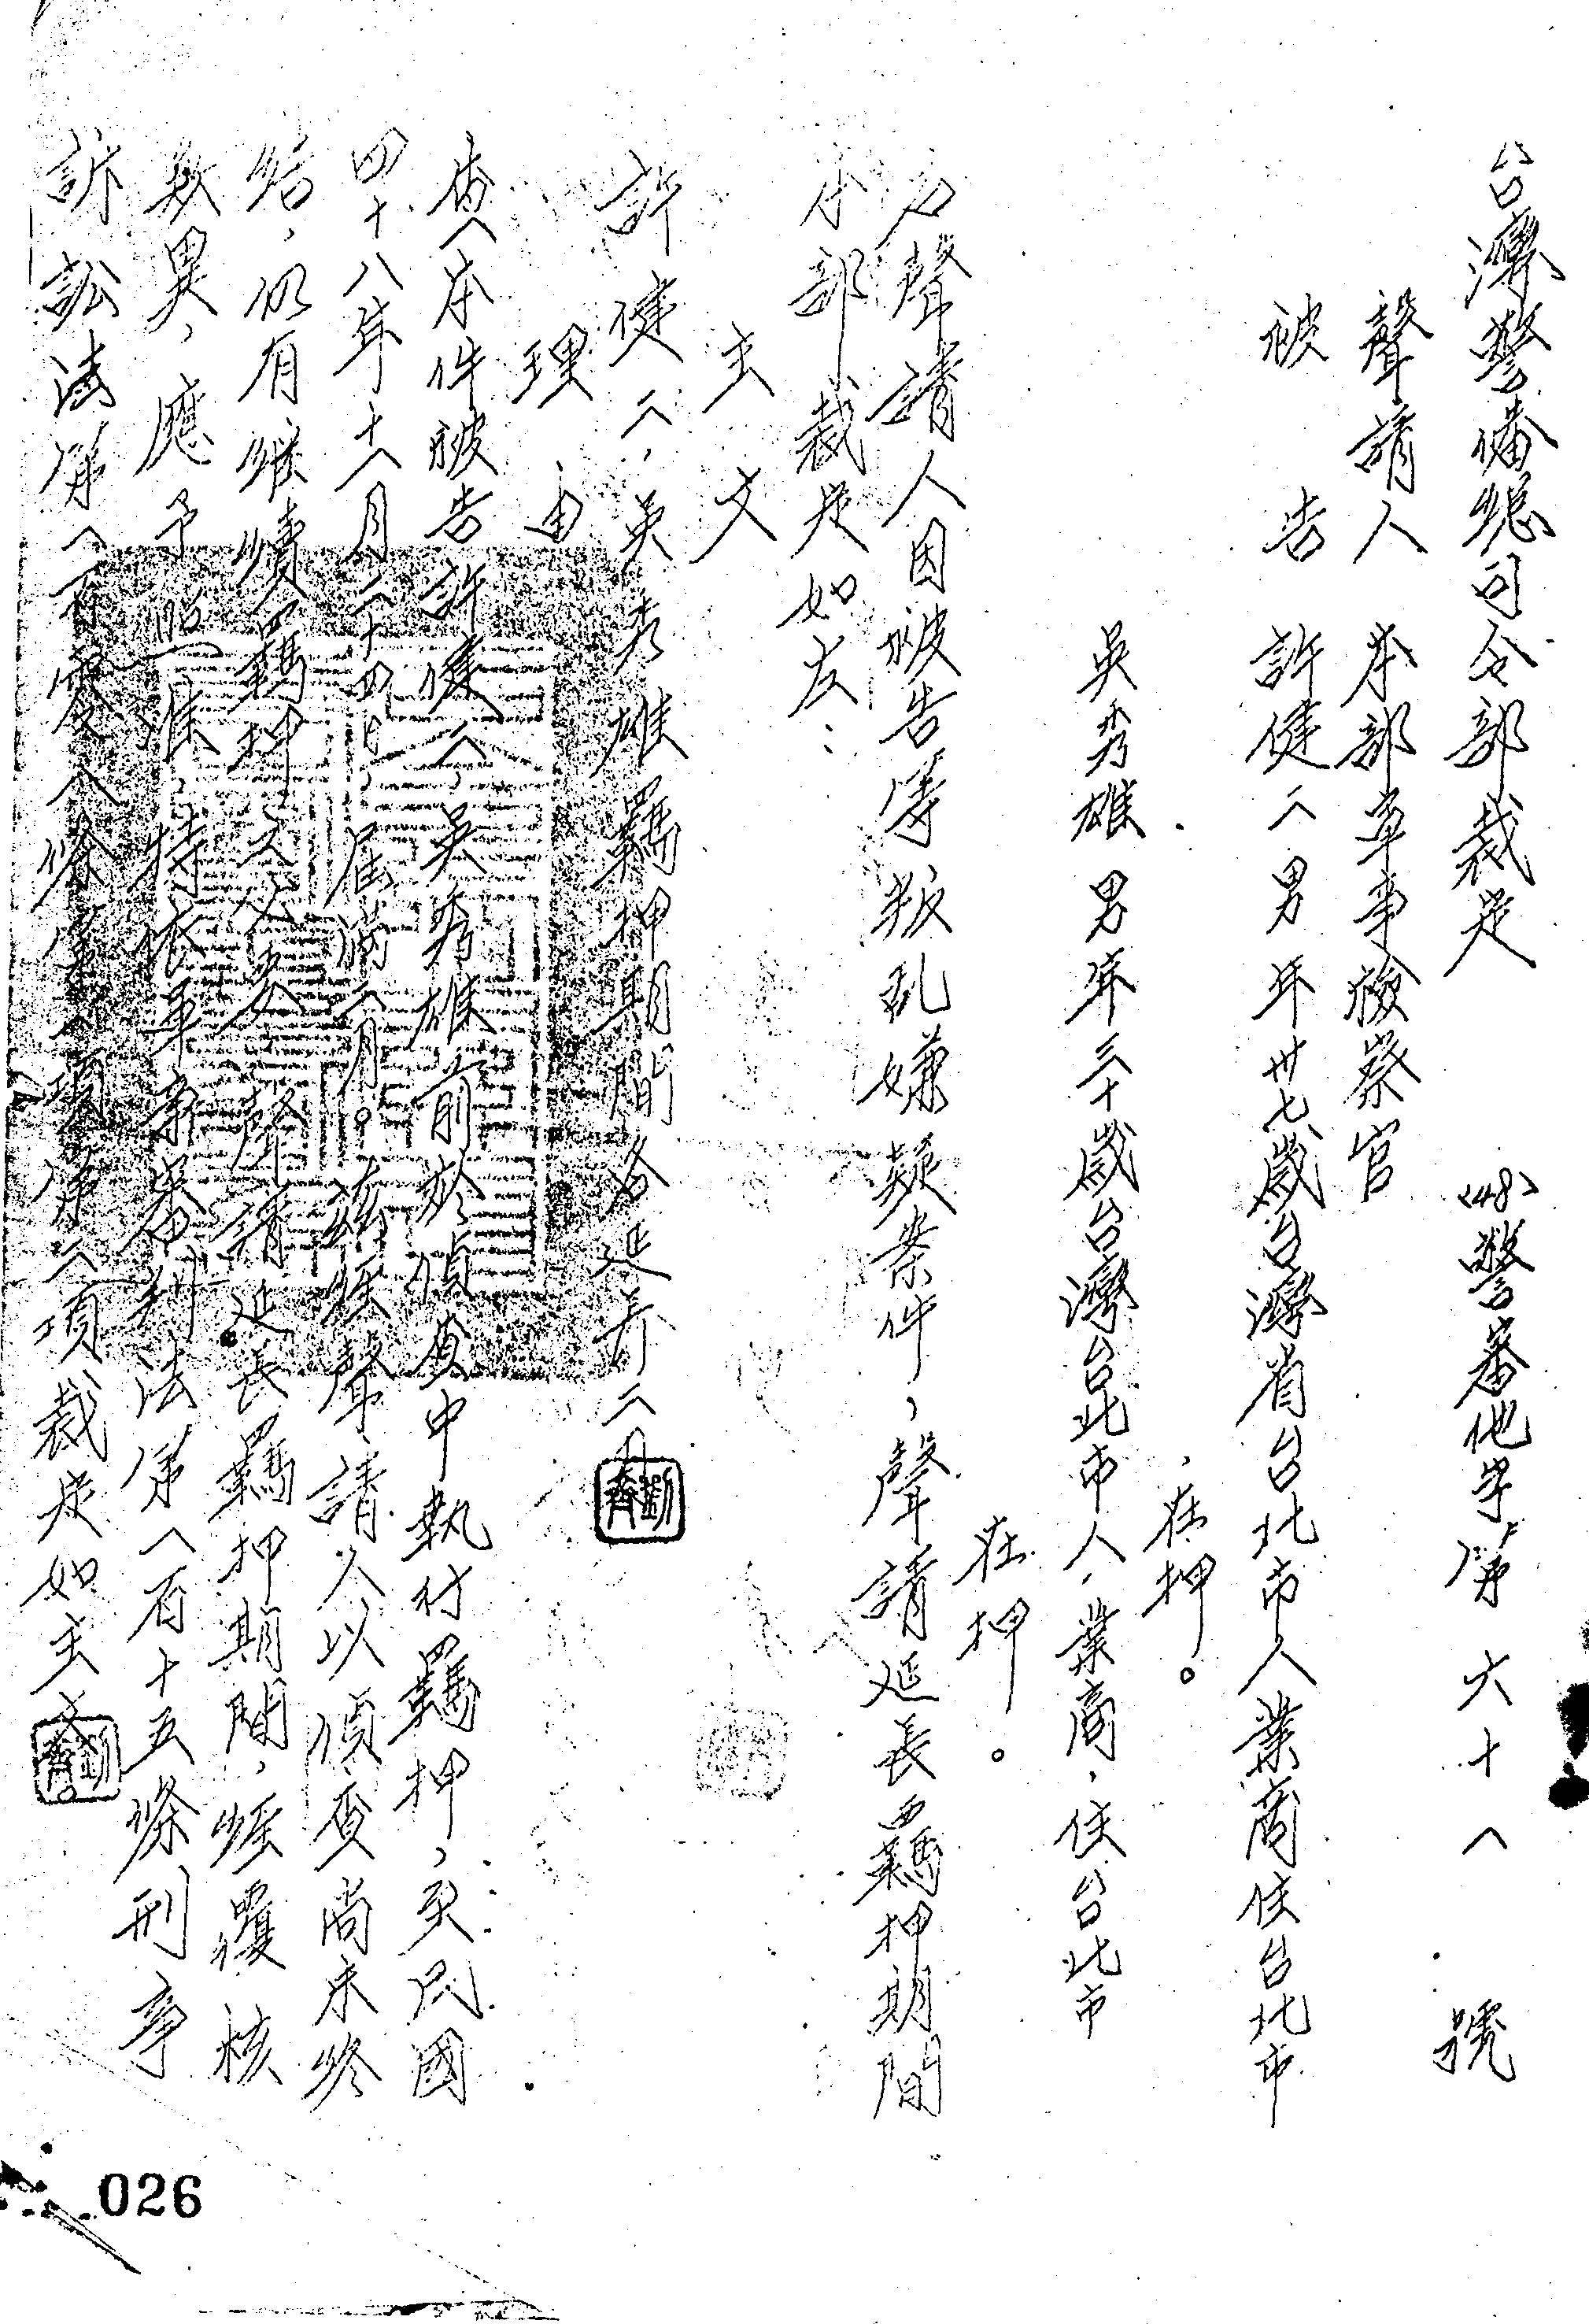 台灣警備總司令部裁定 (48)警審他字第六十八號
聲請人 本部軍事檢察官
被告 許健二男年卅七歲台灣省台北市人業商住台北市
在押。
吳秀雄男年三十歲台灣台北市人,業商,住台北市
在押。
右聲請人因被告等叛乱嫌疑案件,聲請延長羈押期間
本部裁定如左:
主文
許健二,吳秀雄羈押期間各延長二月
理由
查本件被告許健二吳秀雄前於偵查中執行羈押,至民國
四十八年十一月二十四日屆滿二月。茲據聲請人以偵查尚未終
結,仍有繼續羈押之必要聲請延長羈押期間,經覆核
無異,應予照准,特依軍事審判法第一百十五條刑事
訴訟法第一百零八條第一項第二項裁定如主文。
026